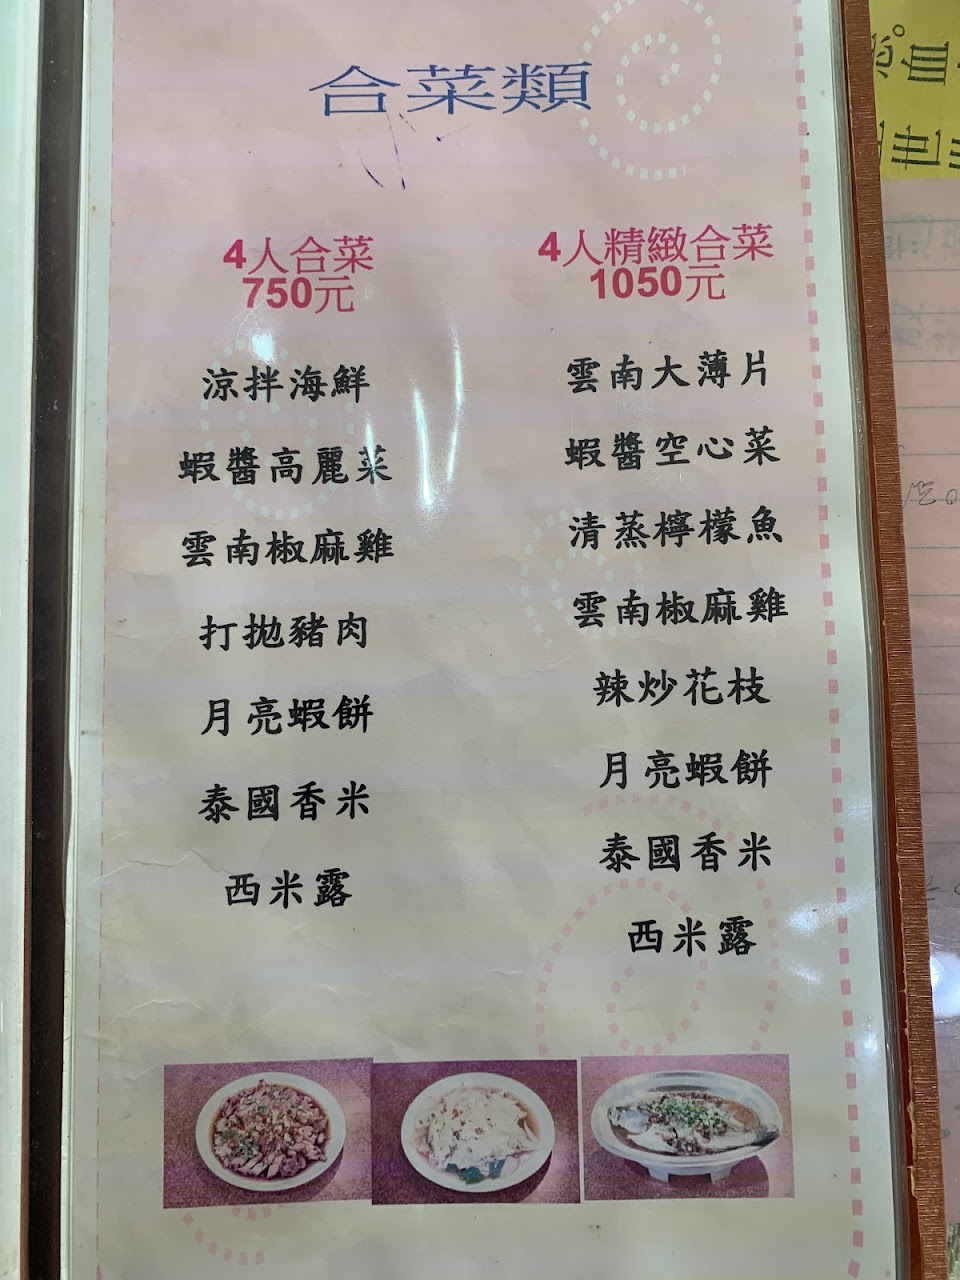 合菜類
4人合菜
750元
涼拌海鮮
蝦醬高麗菜
雲南椒麻雞
打拋豬肉
月亮蝦餅
泰國香米
西米露
4人精緻合菜
1050元
雲南大薄片
蝦醬空心菜
清蒸檸檬魚
雲南椒麻雞
辣炒花枝
月亮蝦餅
泰國香米
西米露